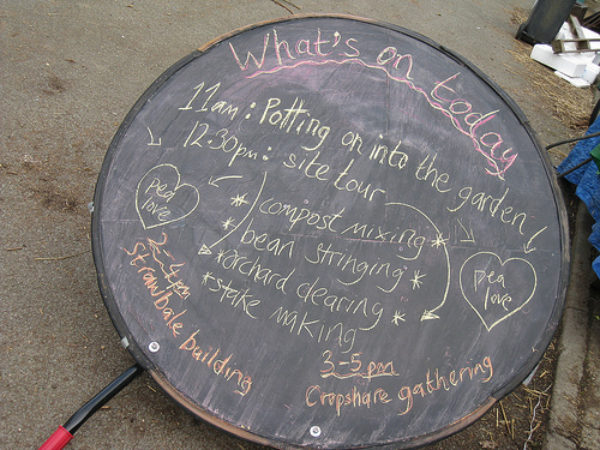 What's on today
11am: Potting on into the garden
12.30pm: site tour
* compost mixing *
* bean stringing *
* orchard clearing *
* stake making
pea
love
pea
love
2-4pm
strawbale building
3-5pm
Cropshare gathering